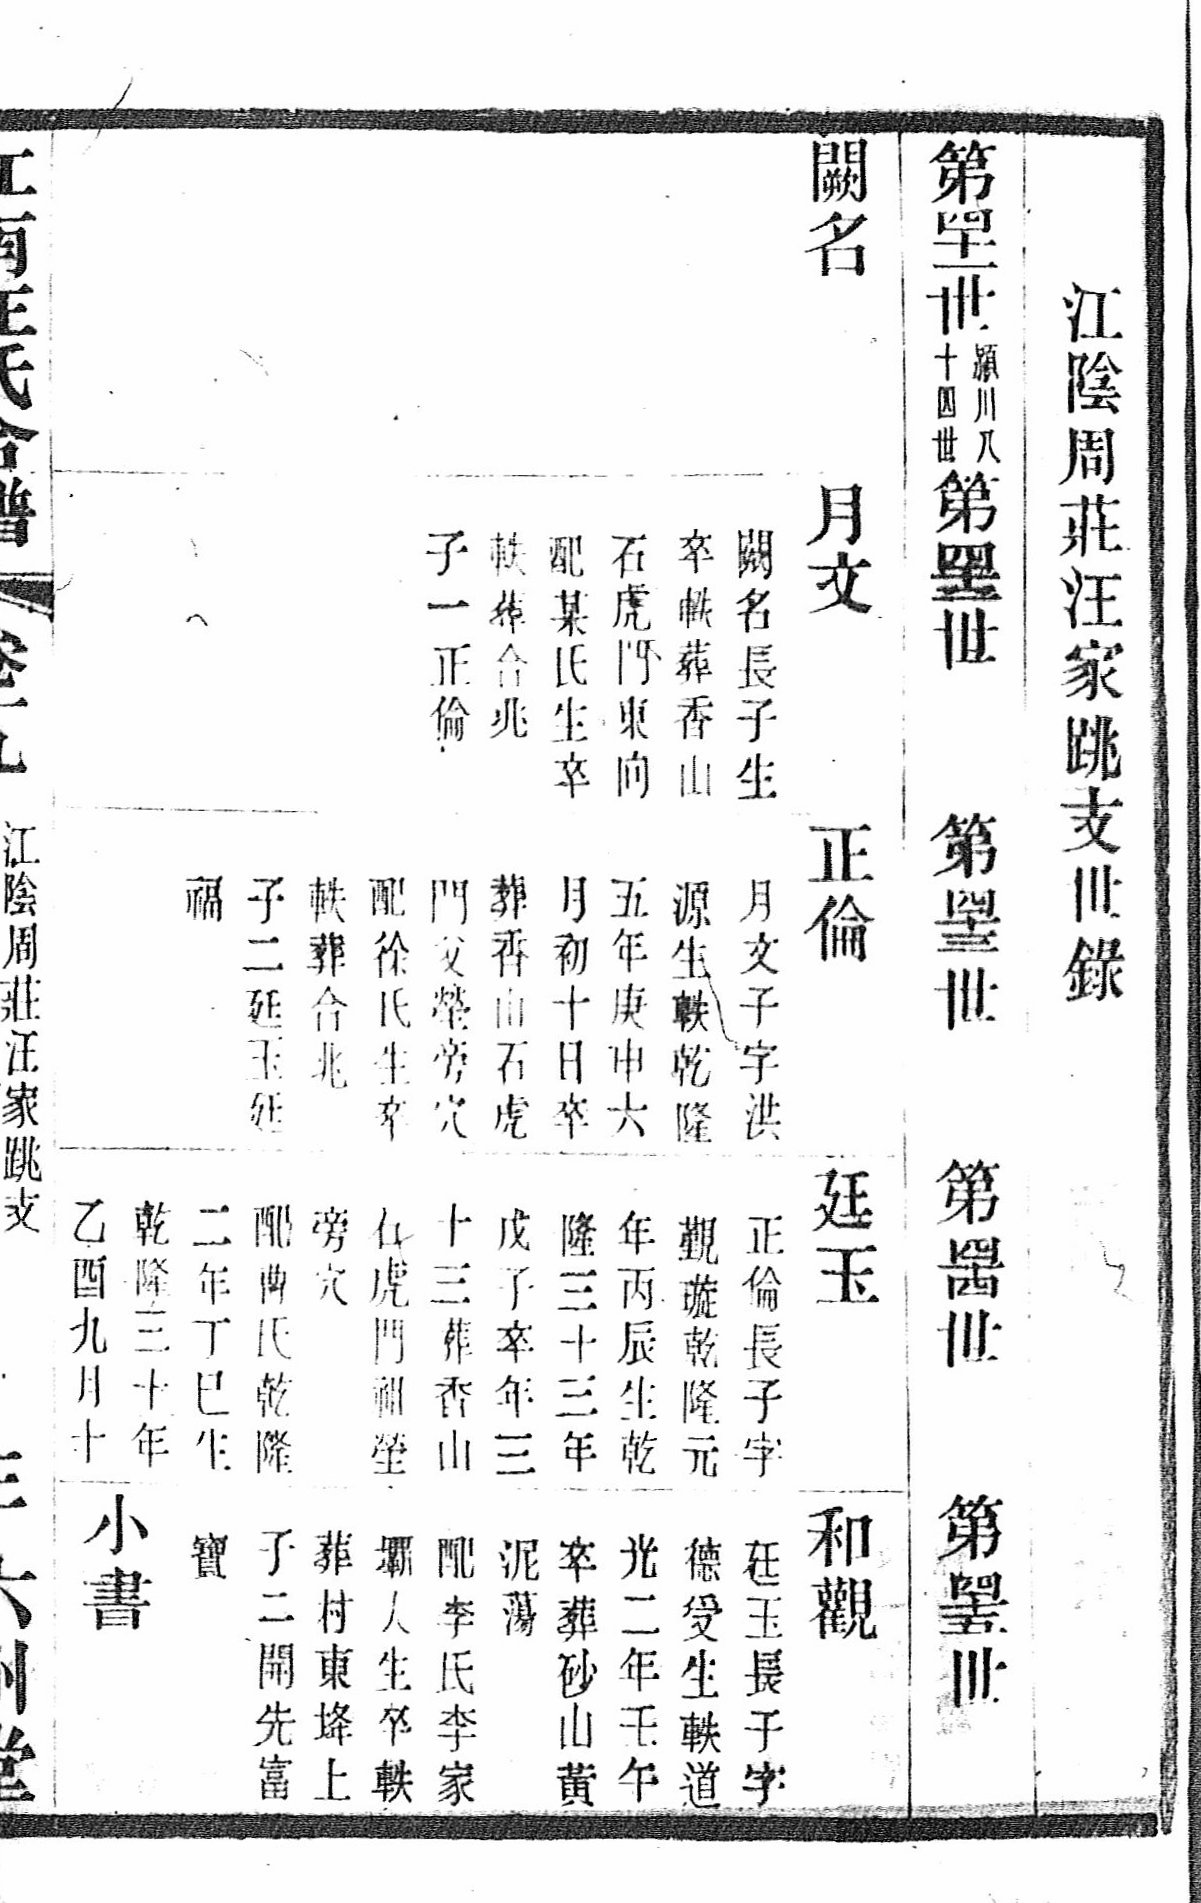 江陰周莊汪家跳支世錄
第卌一世
潁川八
十四世
第卌二世
第卌三世
第卌四世
第卌五世
闕名
月文
闕名長子生
卒軼葬香山
石虎門東向
配某氏生卒
軼葬合兆
子一正倫
正倫
月文子字洪
源生軼乾隆
五年庚申六
月初十日卒
葬香山石虎
門父塋旁穴
配徐氏生卒
軼葬合兆
子二廷玉廷
福
廷玉
正倫長子字
觀璇乾隆元
年丙辰生乾
隆三十三年
戊子卒年三
十三葬香山
石虎門祖塋
旁穴
配曹氏乾隆
二年丁巳生
乾隆三十年
乙酉九月十
和觀
廷玉長子字
德受生軼道
光二年壬午
卒葬砂山黃
泥蕩
配李氏李家
壩人生卒軼
葬村東埄上
子二開先富
寶
小書
江南汪氏合譜
卷十九
江陰周莊汪家跳支
一
六州堂